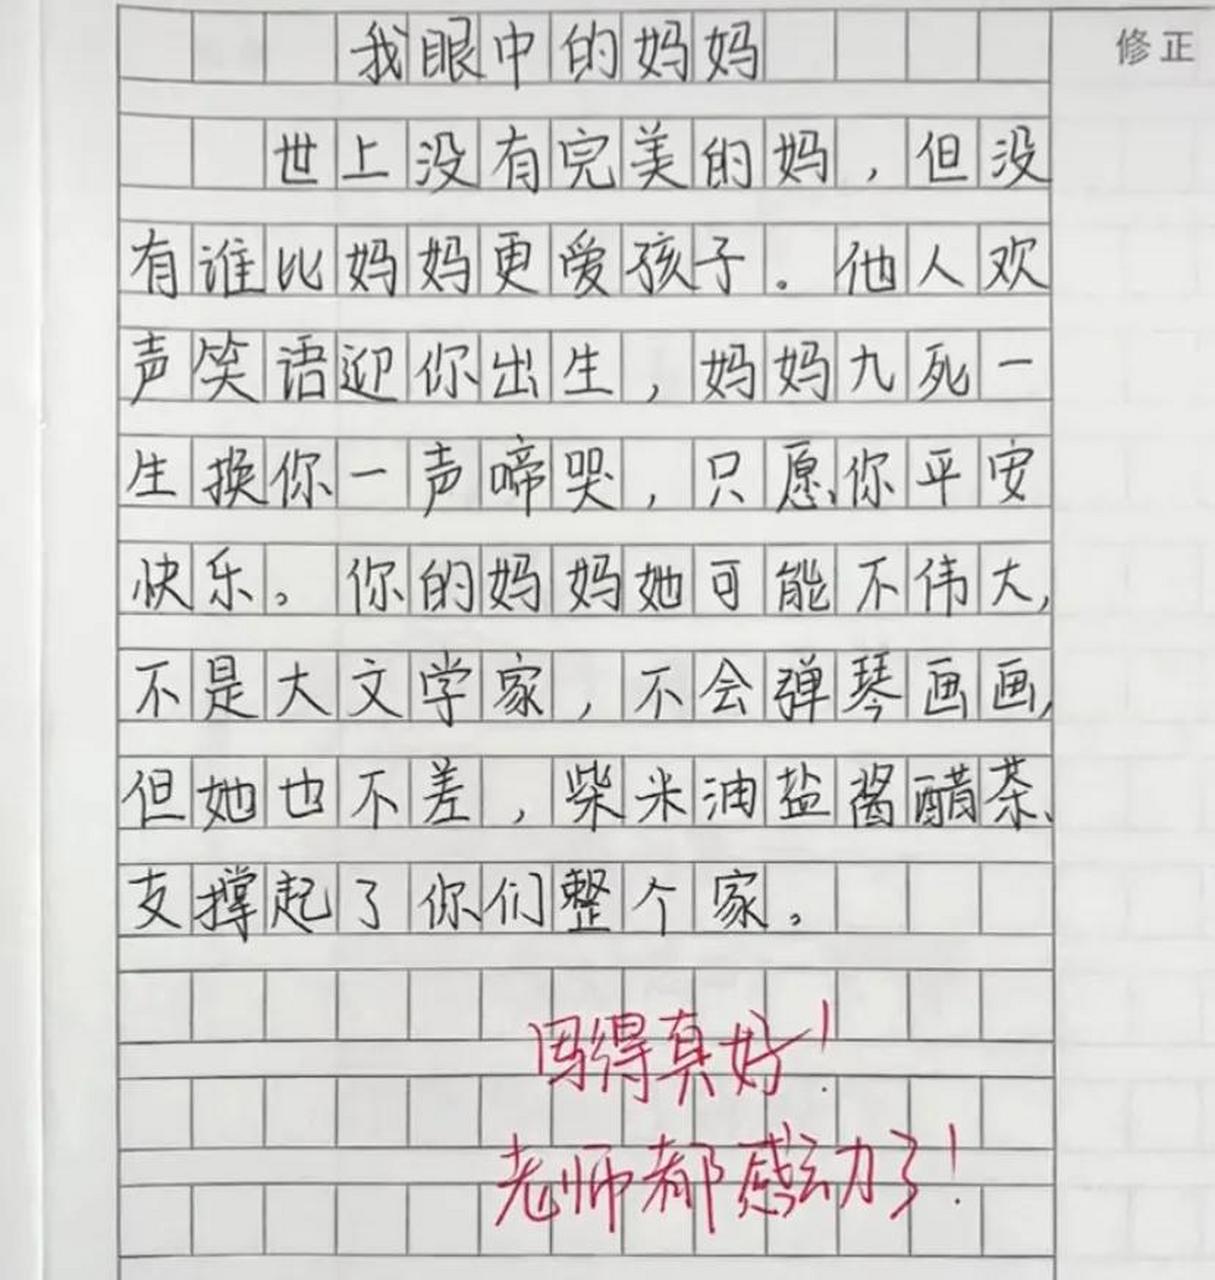 我眼中的妈妈
修正
世上没有完美的妈，但没
有谁比妈妈更爱孩子。他人欢
声笑语迎你出生，妈妈九死一
生换你一声啼哭，只愿你平安
快乐。你的妈妈她可能不伟大，
不是大文学家，不会弹琴画画，
但她也不差，柴米油盐酱醋茶、
支撑起了你们整个家。
写得真好！
老师都感动了！